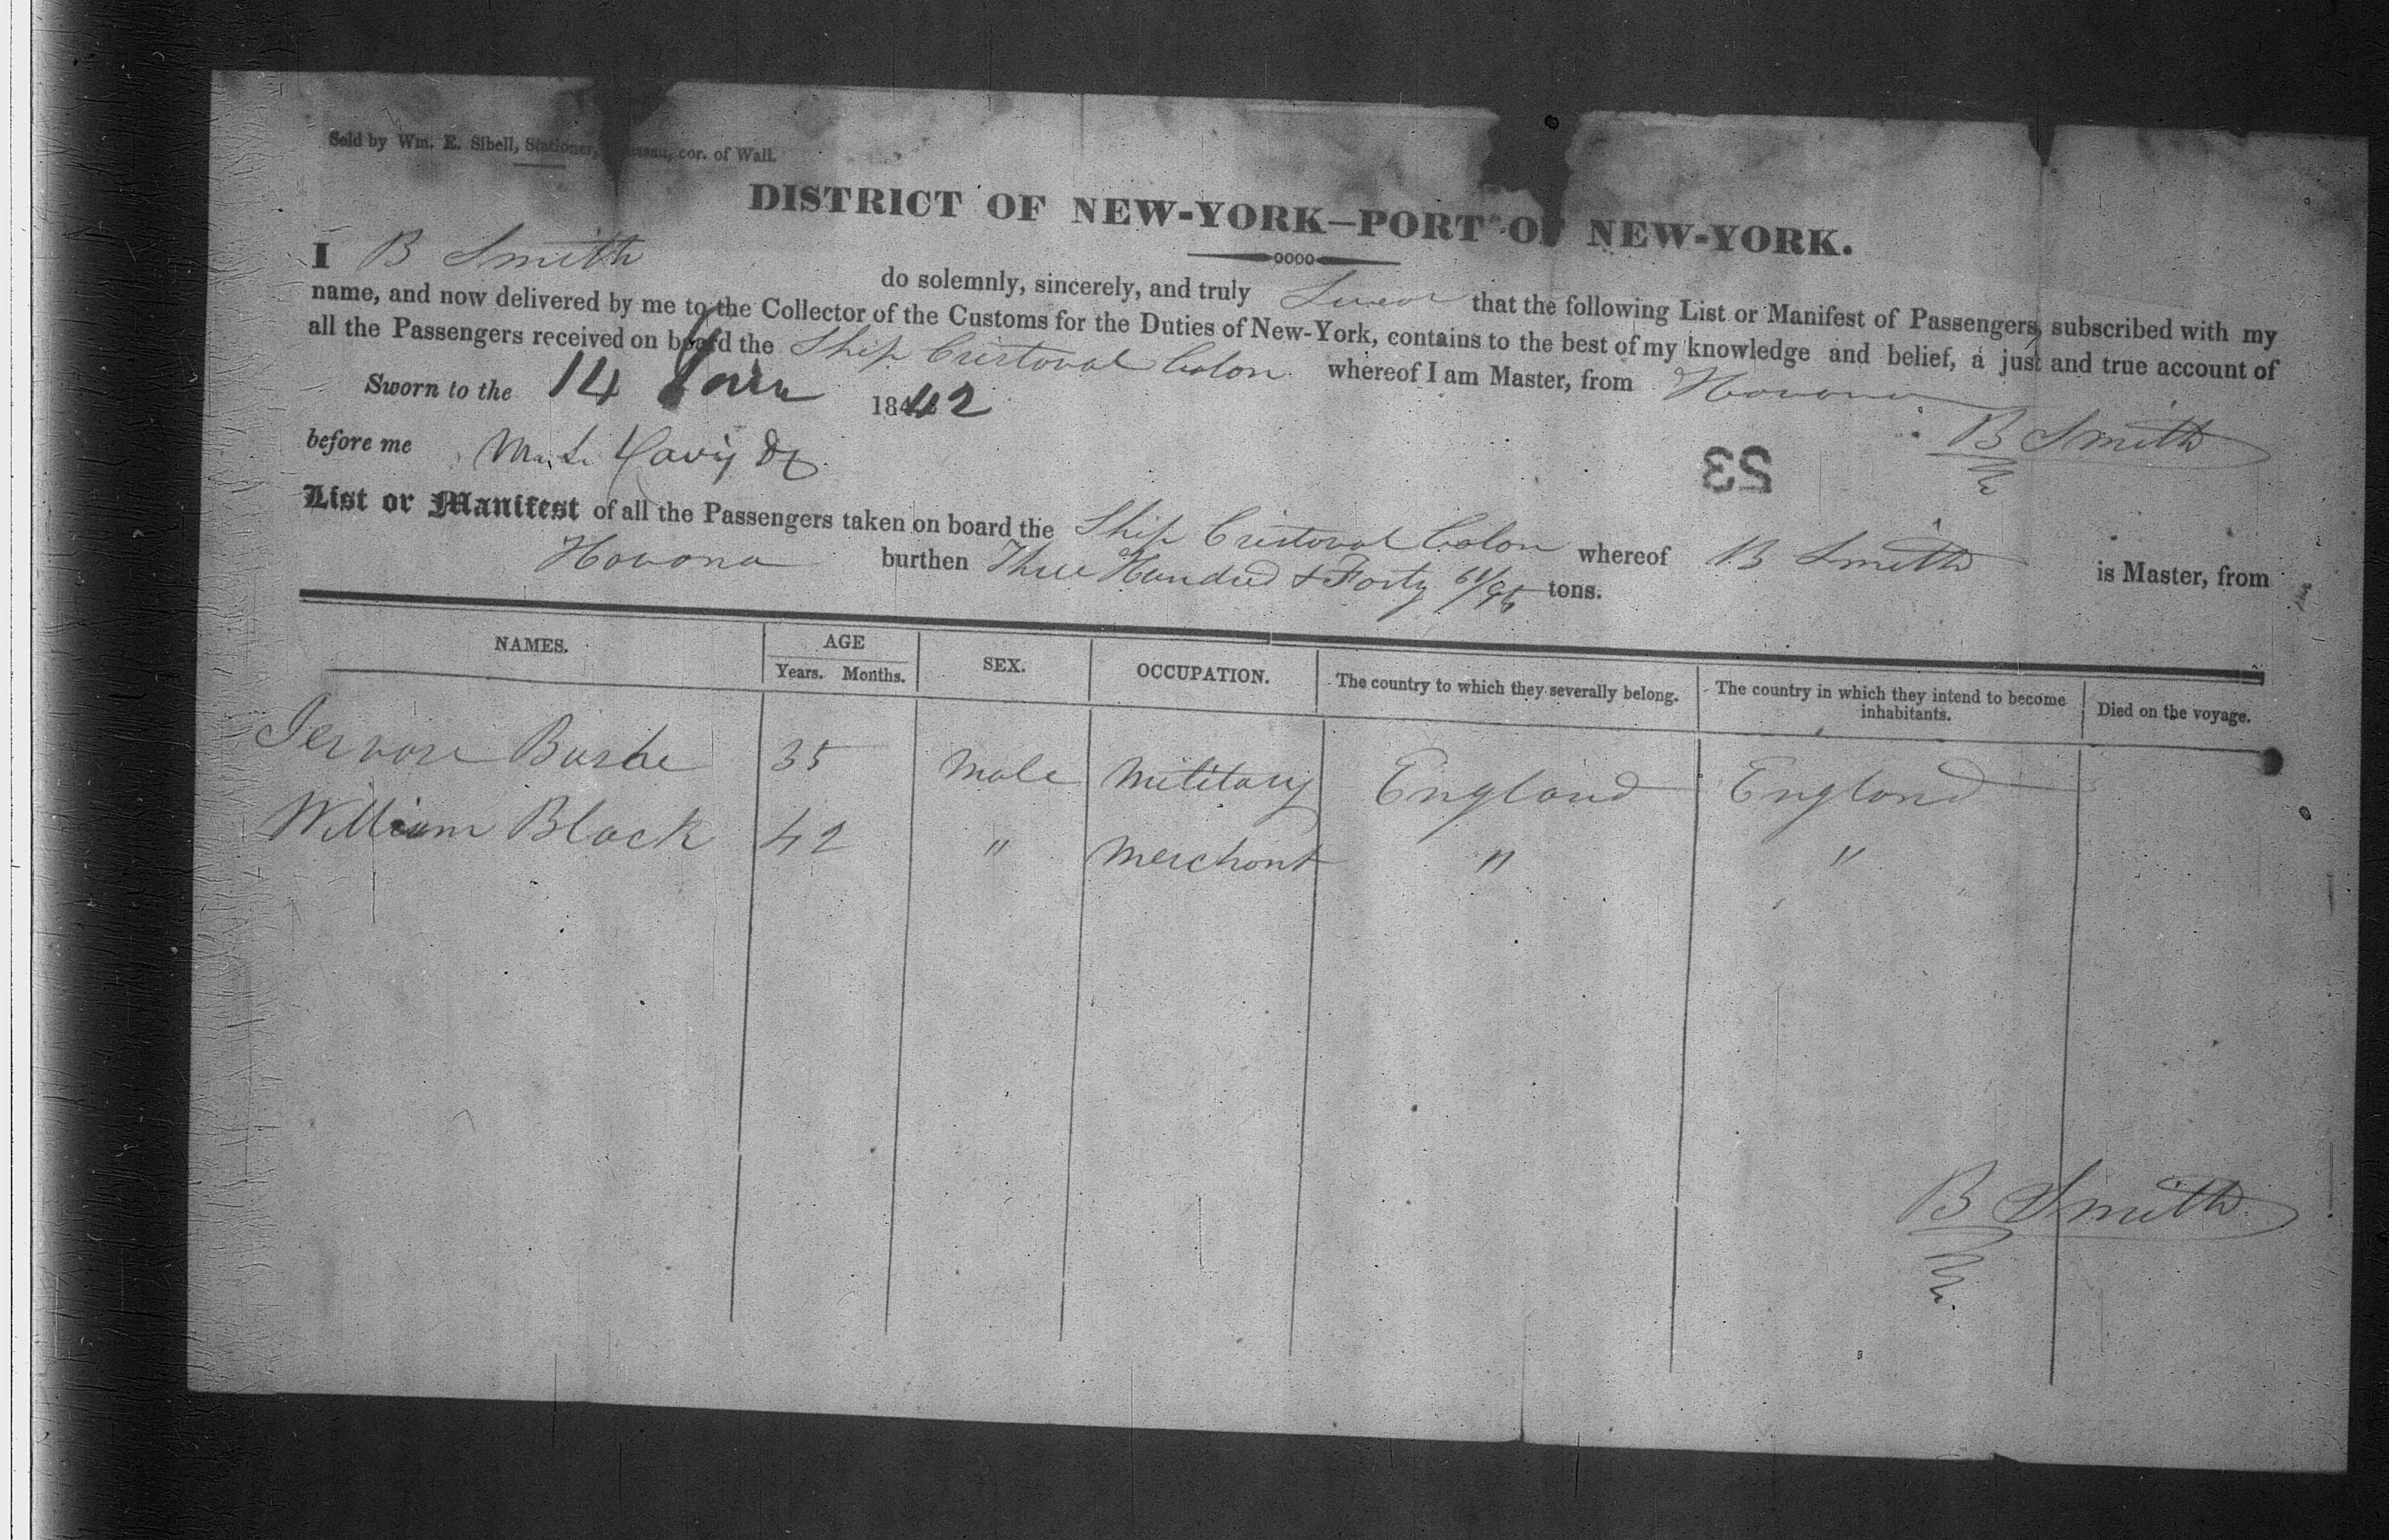 Sold by Wm. E. Sibell, Stationer, cor. of Wall.
DISTRICT OF NEW-YORK—PORT OF NEW-YORK.
I B Smith do solemnly, sincerely, and truly Swear that the following List or Manifest of Passengers, subscribed with my
name, and now delivered by me to the Collector of the Customs for the Duties of New-York, contains to the best of my knowledge and belief, a just and true account of
all the Passengers received on board the Ship Cristoval Colon whereof I am Master, from Havana
Sworn to the 14 Jan 1842
B Smith
before me
23
List or Manifest of all the Passengers taken on board the Ship Cristoval Colon whereof B Smith is Master, from
Havana burthen Three Hundred & Forty 61/95 tons.
NAMES. AGE SEX. OCCUPATION. The country to which they severally belong. The country in which they intend to become inhabitants. Died on the voyage.
Years. Months.
35 Male Military England England
William Black 42 " Merchant " "
B Smith